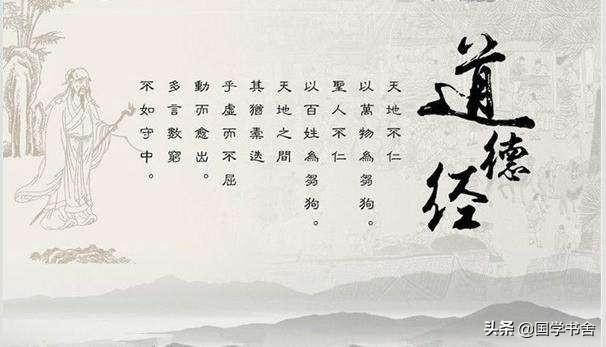 道德经
天地不仁
以萬物為芻狗。
聖人不仁
以百姓為芻狗。
天地之間
其猶橐迭
乎虛而不屈
動而愈出。
多言數窮
不如守中。
头条 @国学书舍